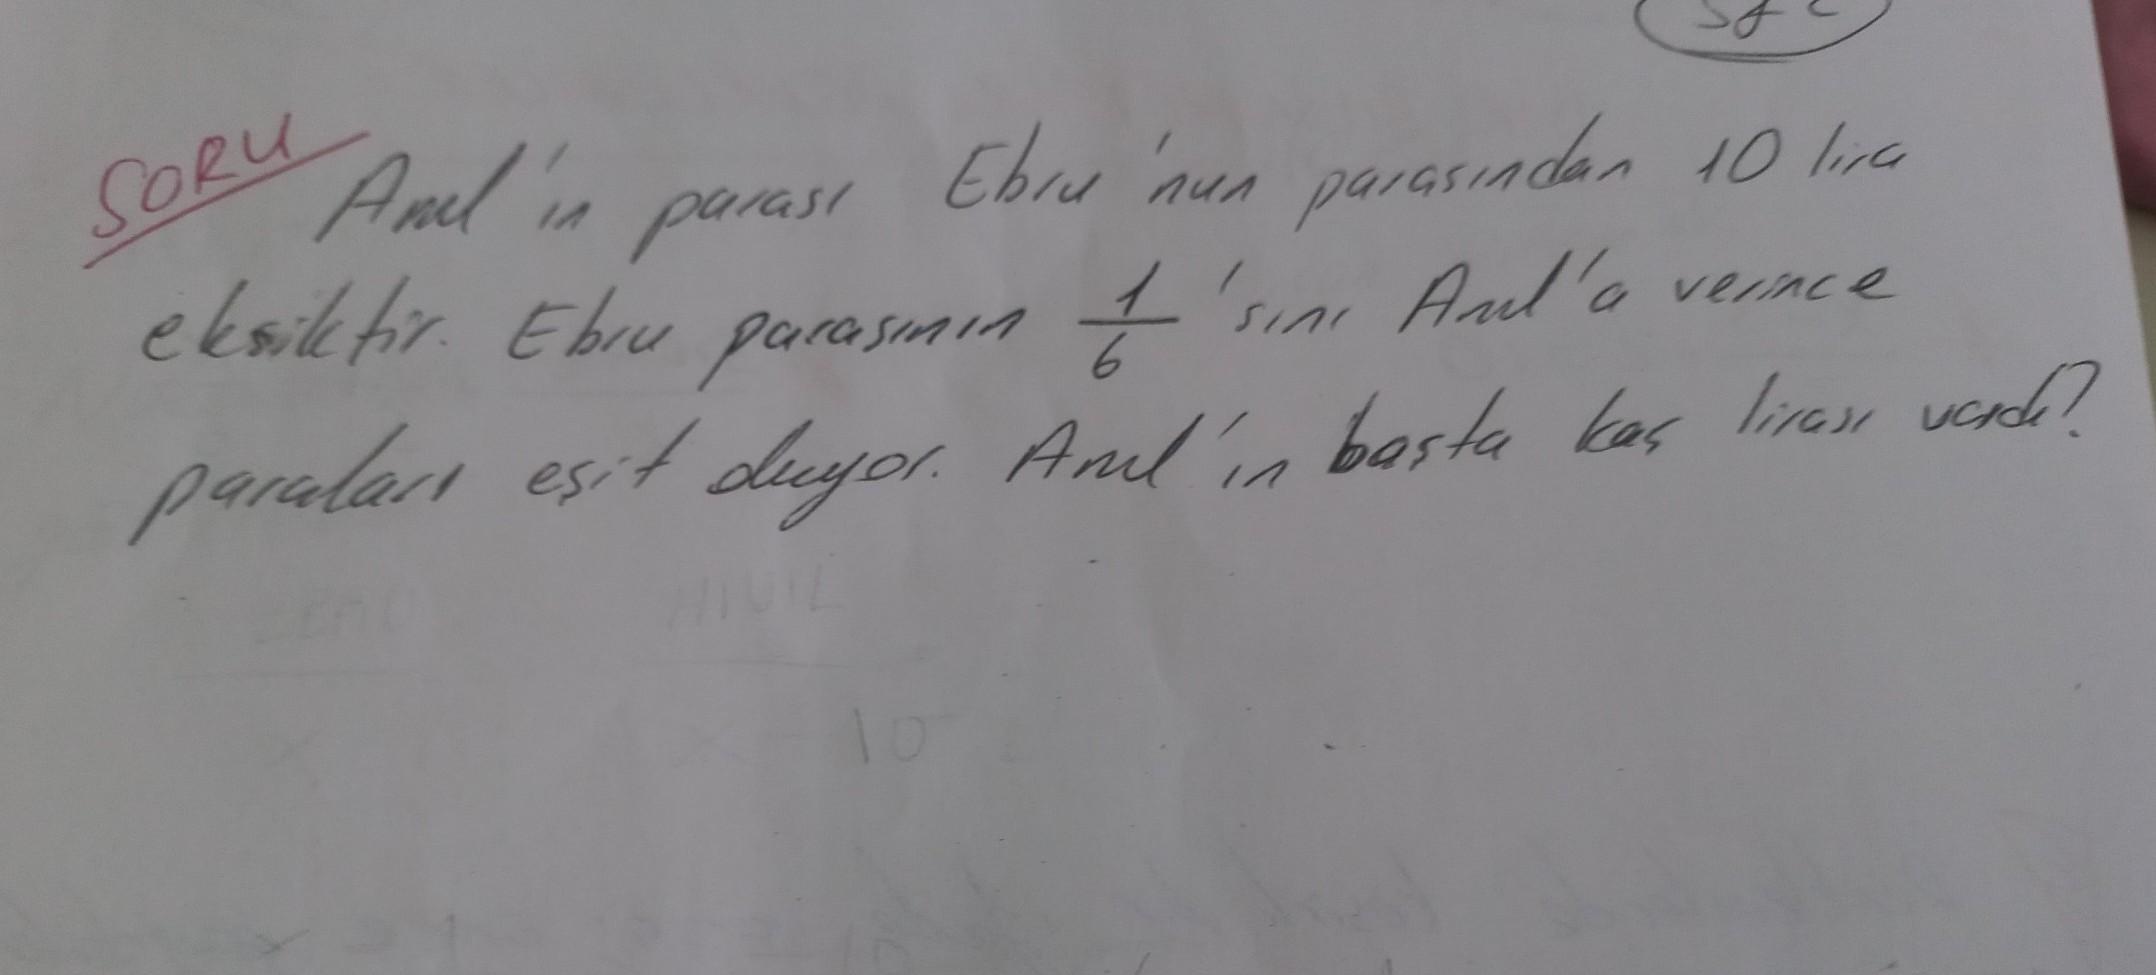 SORU
Anıl'ın parası Ebru'nun parasından 10 lira
eksiktir. Ebru parasının 1/6 'sını Anıl'a verince
paraları eşit oluyor. Anıl'ın başta kaç lirası vardı?
x - 10
x